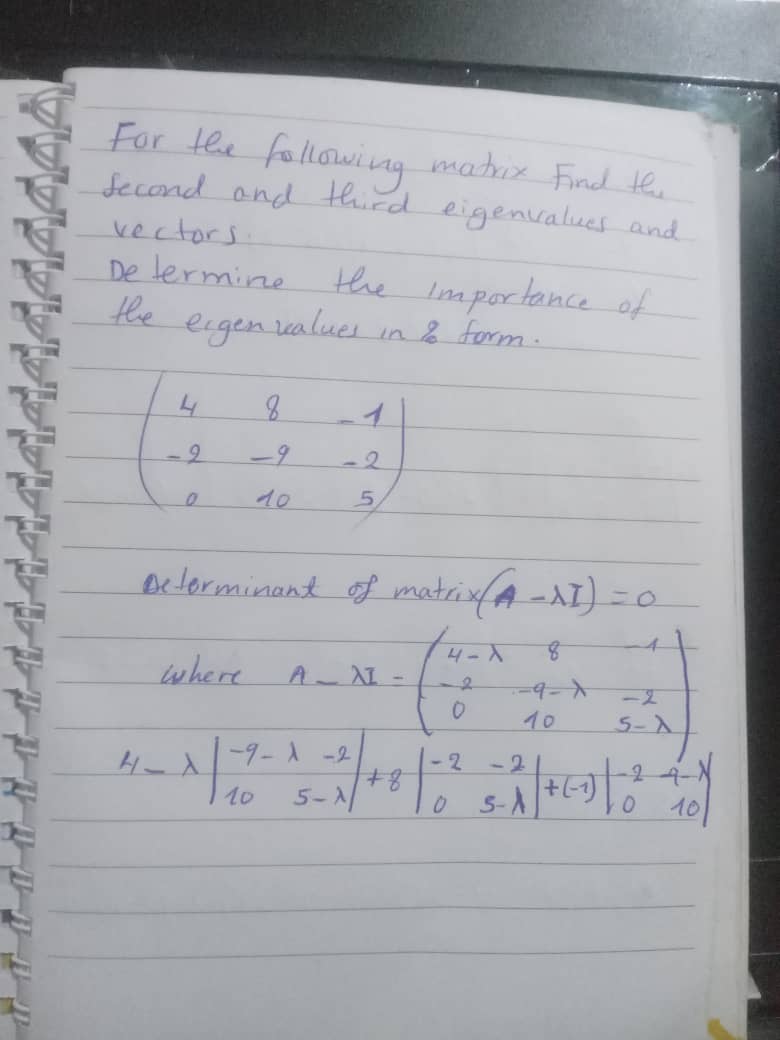 For the following matrix Find the
second and third eigenvalues and
vectors.
Determine the importance of
the eigenvalues in % form.
4 8 -1
-2 -9 -2
0 10 5
Determinant of matrix (A - λI) = 0
where A - λI = ( 4-λ 8 -1
-2 -9-λ -2
0 10 5-λ )
4-λ | -9-λ -2 | +8 | -2 -2 | +(-1) | -2 -9-λ |
| 10 5-λ | | 0 5-λ | | 0 10 |